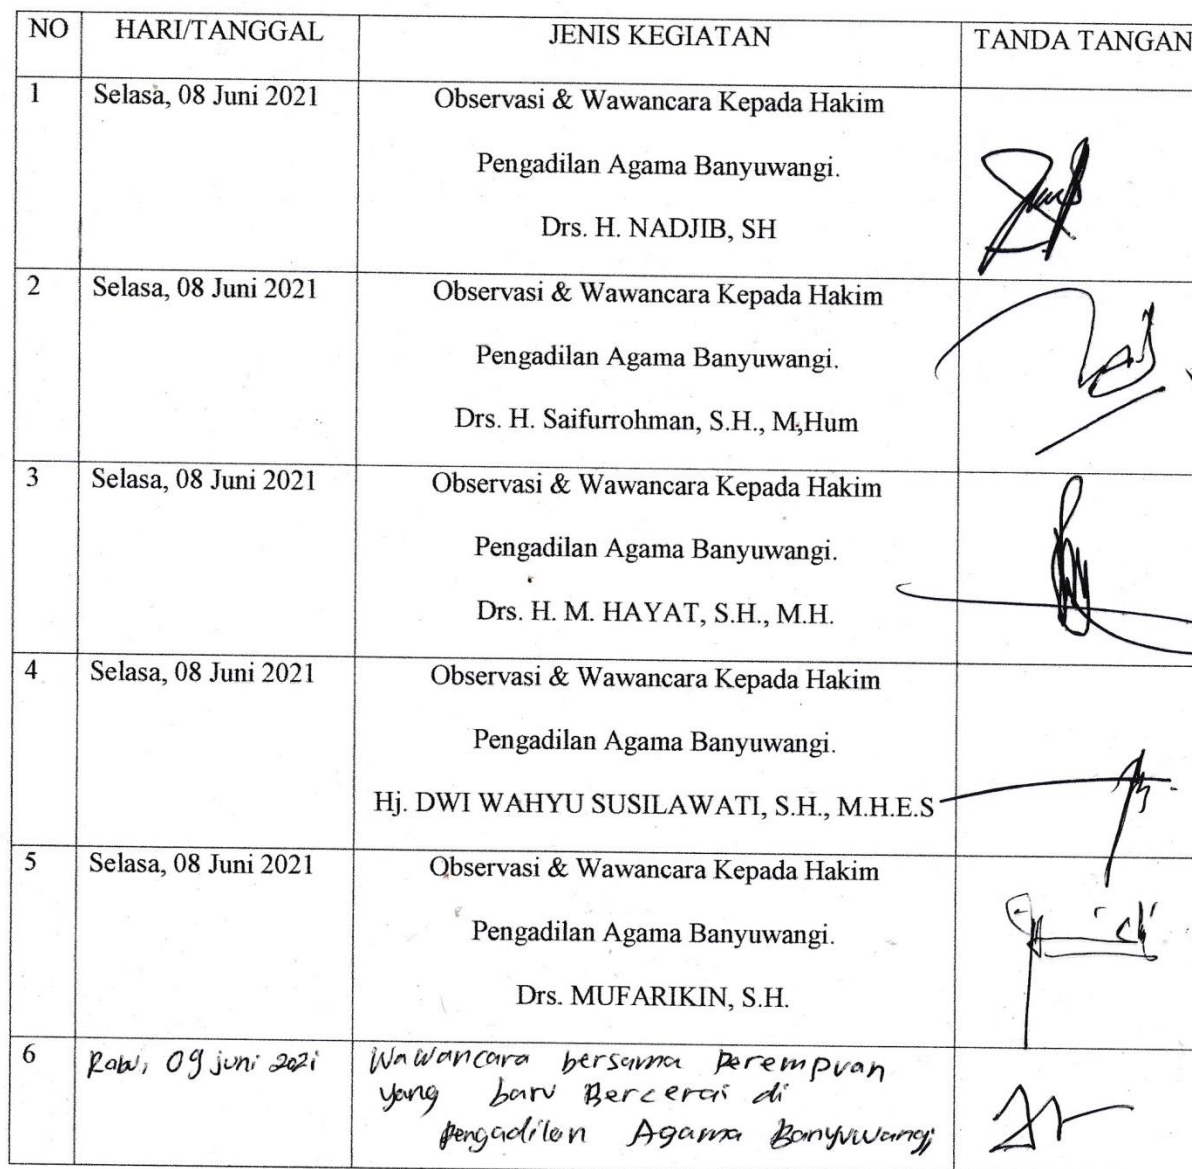 NO HARI/TANGGAL JENIS KEGIATAN TANDA TANGAN
1 Selasa, 08 Juni 2021 Observasi & Wawancara Kepada Hakim
Pengadilan Agama Banyuwangi.
Drs. H. NADJIB, SH
2 Selasa, 08 Juni 2021 Observasi & Wawancara Kepada Hakim
Pengadilan Agama Banyuwangi.
Drs. H. Saifurrohman, S.H., M,Hum
3 Selasa, 08 Juni 2021 Observasi & Wawancara Kepada Hakim
Pengadilan Agama Banyuwangi.
Drs. H. M. HAYAT, S.H., M.H.
4 Selasa, 08 Juni 2021 Observasi & Wawancara Kepada Hakim
Pengadilan Agama Banyuwangi.
Hj. DWI WAHYU SUSILAWATI, S.H., M.H.E.S
5 Selasa, 08 Juni 2021 Observasi & Wawancara Kepada Hakim
Pengadilan Agama Banyuwangi.
Drs. MUFARIKIN, S.H.
6 Rabu, 09 juni 2021 Wawancara bersama Perempuan
yang baru Bercerai di
Pengadilan Agama Banyuwangi